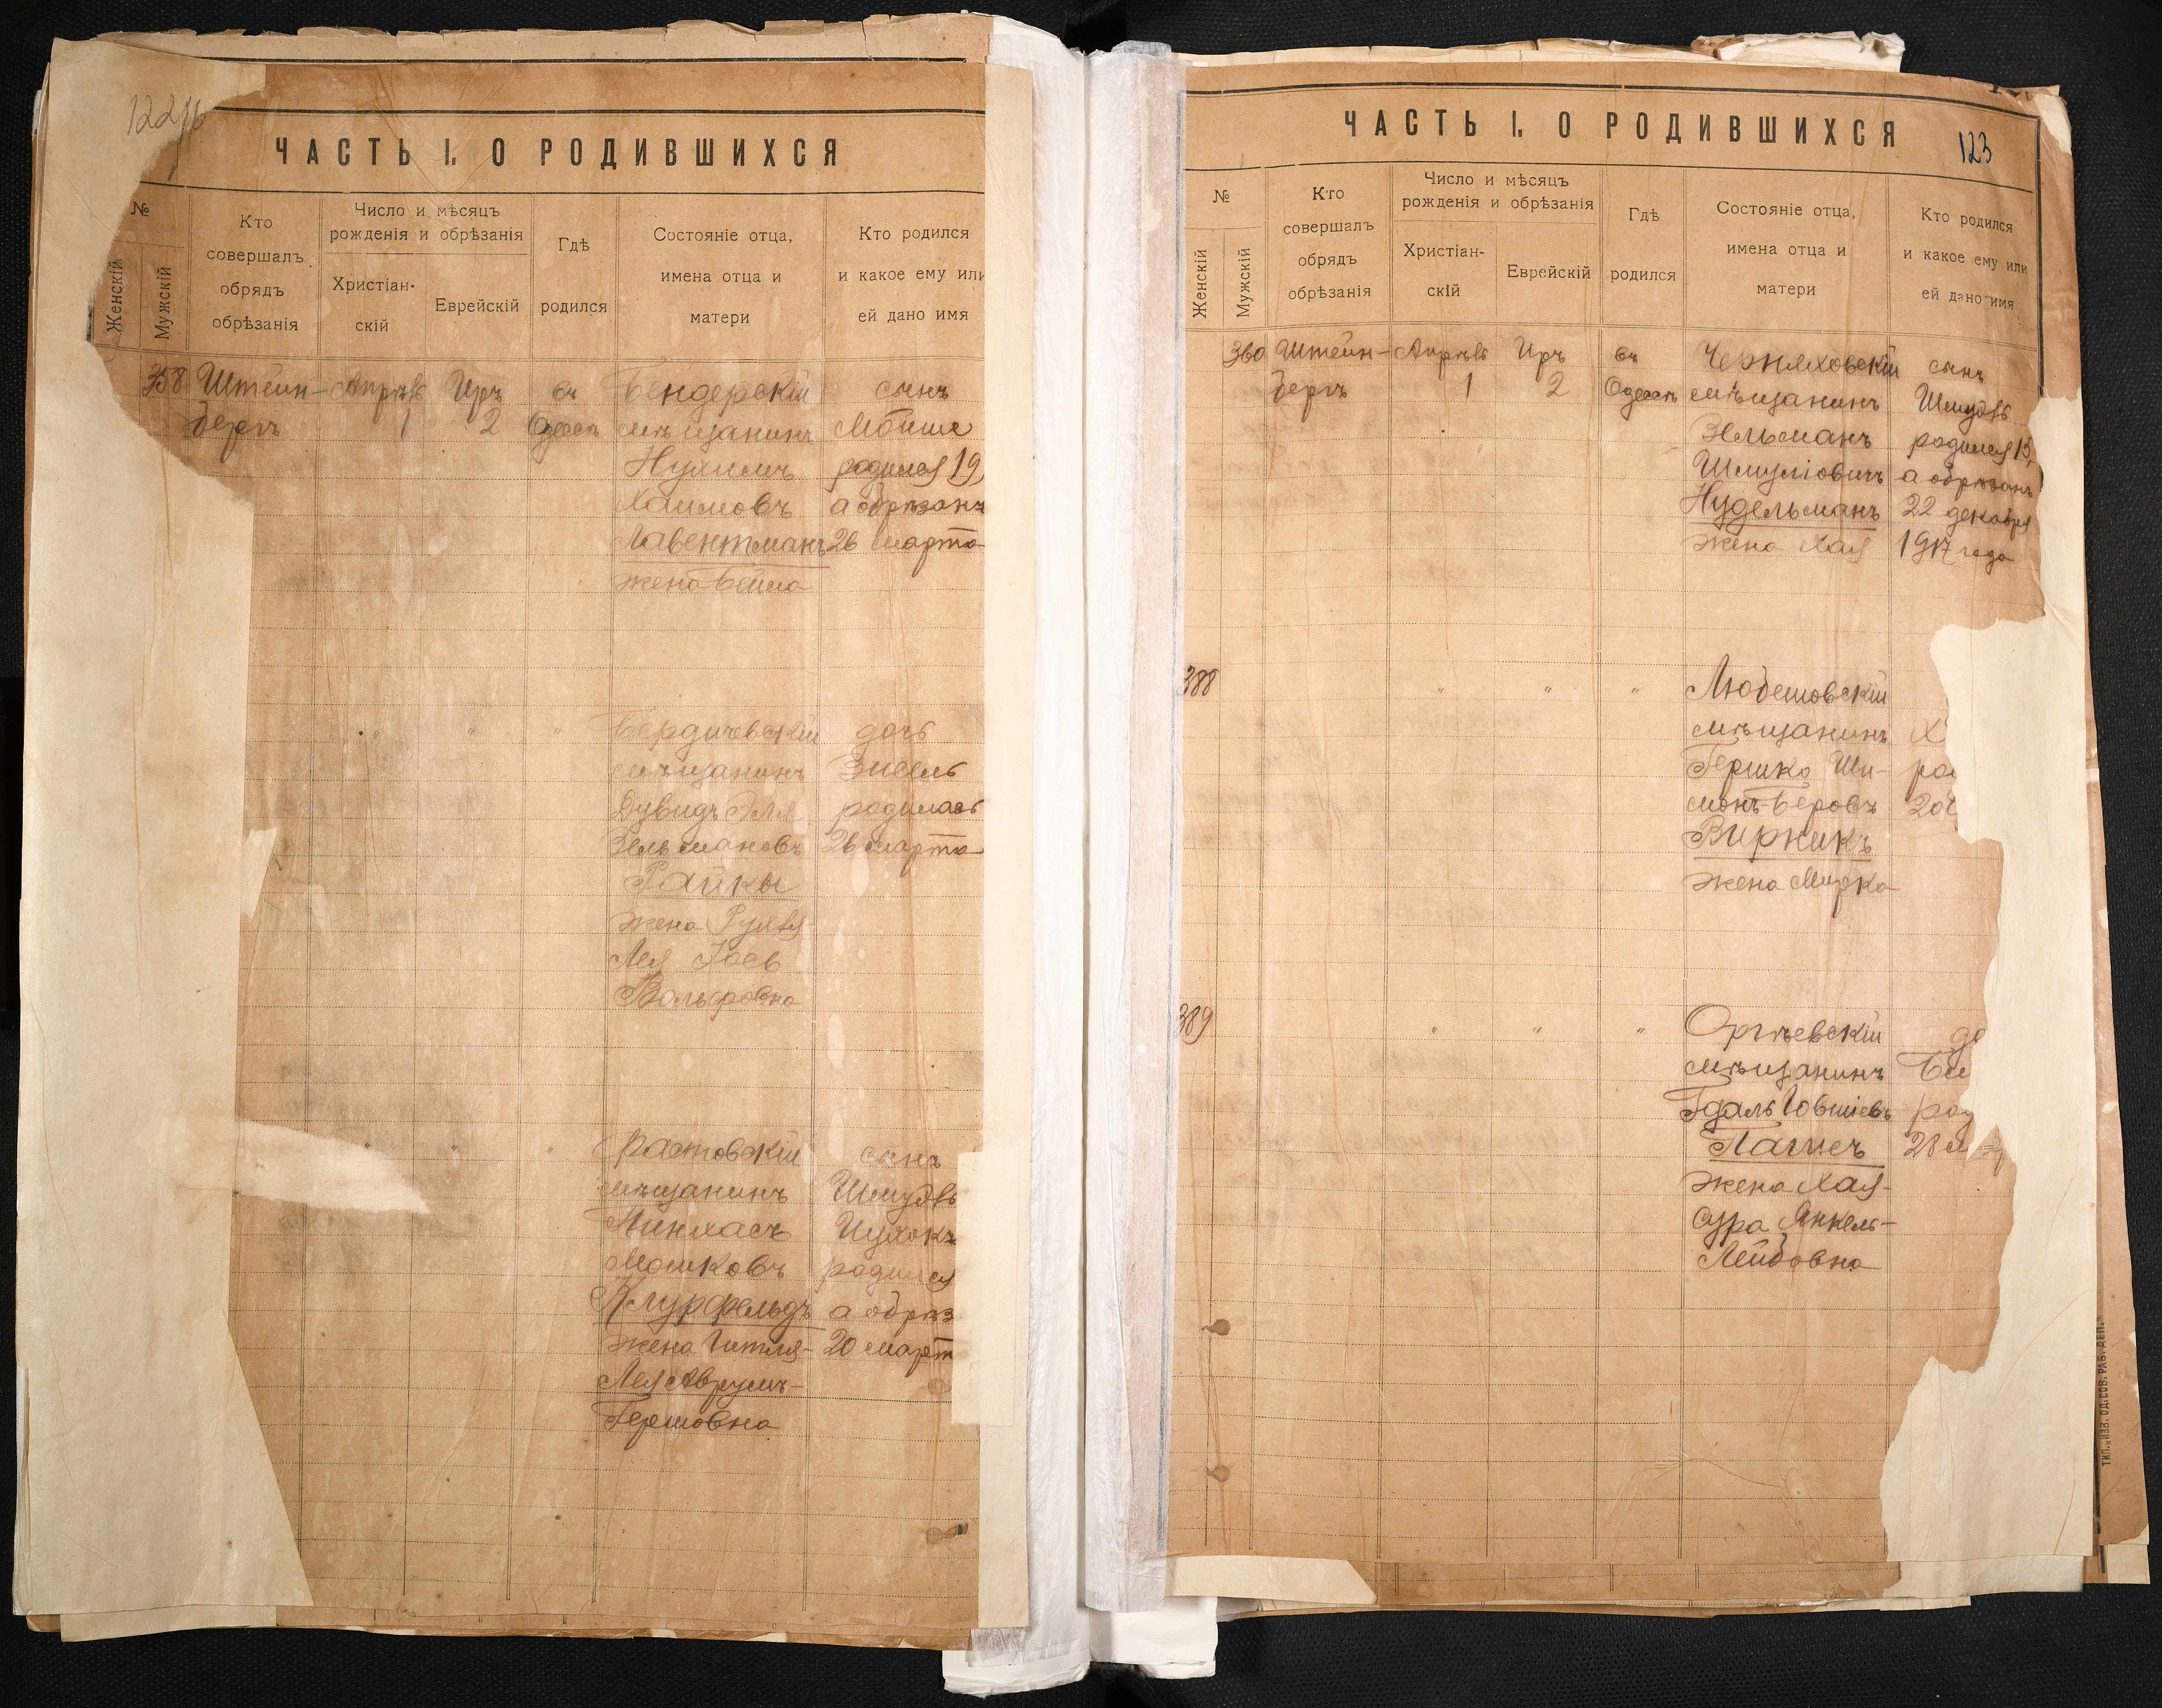 ЧАСТЬ I. О РОДИВШИХСЯ
№
Женскій
Мужскій
Кто
совершалъ
обрядъ
обрѣзанія
Число и мѣсяцъ
рожденія и обрѣзанія
Христіан-
скій
Еврейскій
Гдѣ
родился
Состояніе отца,
имена отца и
матери
Кто родился
и какое ему или
ей дано имя
358
Штейн-
бергъ
Апрѣль
1
Иръ
2
въ
Одессѣ
Бендерскій
мѣщанинъ
Нухимъ
Хаимовъ
Лавентманъ
жена Бейла
сынъ
Мойше
родился 19,
а обрѣзанъ
26 марта
" " "
Бердичевскій
мѣщанинъ
Дувидъ Эля
Зельмановъ
Райкы
жена Рухля
Лея Іоев
Вольфровна
дочь
Зисель
родилась
26 марта
" " "
мѣщанинъ
Пинхасъ
Мошковъ
Клурфельдъ
жена Гитля-
Лея Аврумъ-
Гершовна
сынъ
Шмудль
Ицхокъ
родился
а обрѣз
20 март
ЧАСТЬ I. О РОДИВШИХСЯ
123
№
Женскій
Мужскій
Кто
совершалъ
обрядъ
обрѣзанія
Число и мѣсяцъ
рожденія и обрѣзанія
Христіан-
скій
Еврейскій
Гдѣ
родился
Состояніе отца,
имена отца и
матери
Кто родился
и какое ему или
ей дано имя
360
Штейн-
бергъ
Апрѣль
1
Иръ
2
въ
Одессѣ
Черняховскій
мѣщанинъ
Зельманъ
Шмуліовичъ
Нудельманъ
жена Хая
сынъ
Шмудль
родился 15,
а обрѣзанъ
22 декабря
1917 года
388
" " "
Любешовскій
мѣщанинъ
Гершко Ши-
монъ-Беровъ
Вирникъ
жена Мирка
389
" " "
Оргѣевскій
мѣщанинъ
Гдаль Іовшіевъ
жена Хая-
Сура Янкель-
Лейбовна
28
ТИП. „ИЗВ. ОД. СОВ. РАБ. ДЕП."